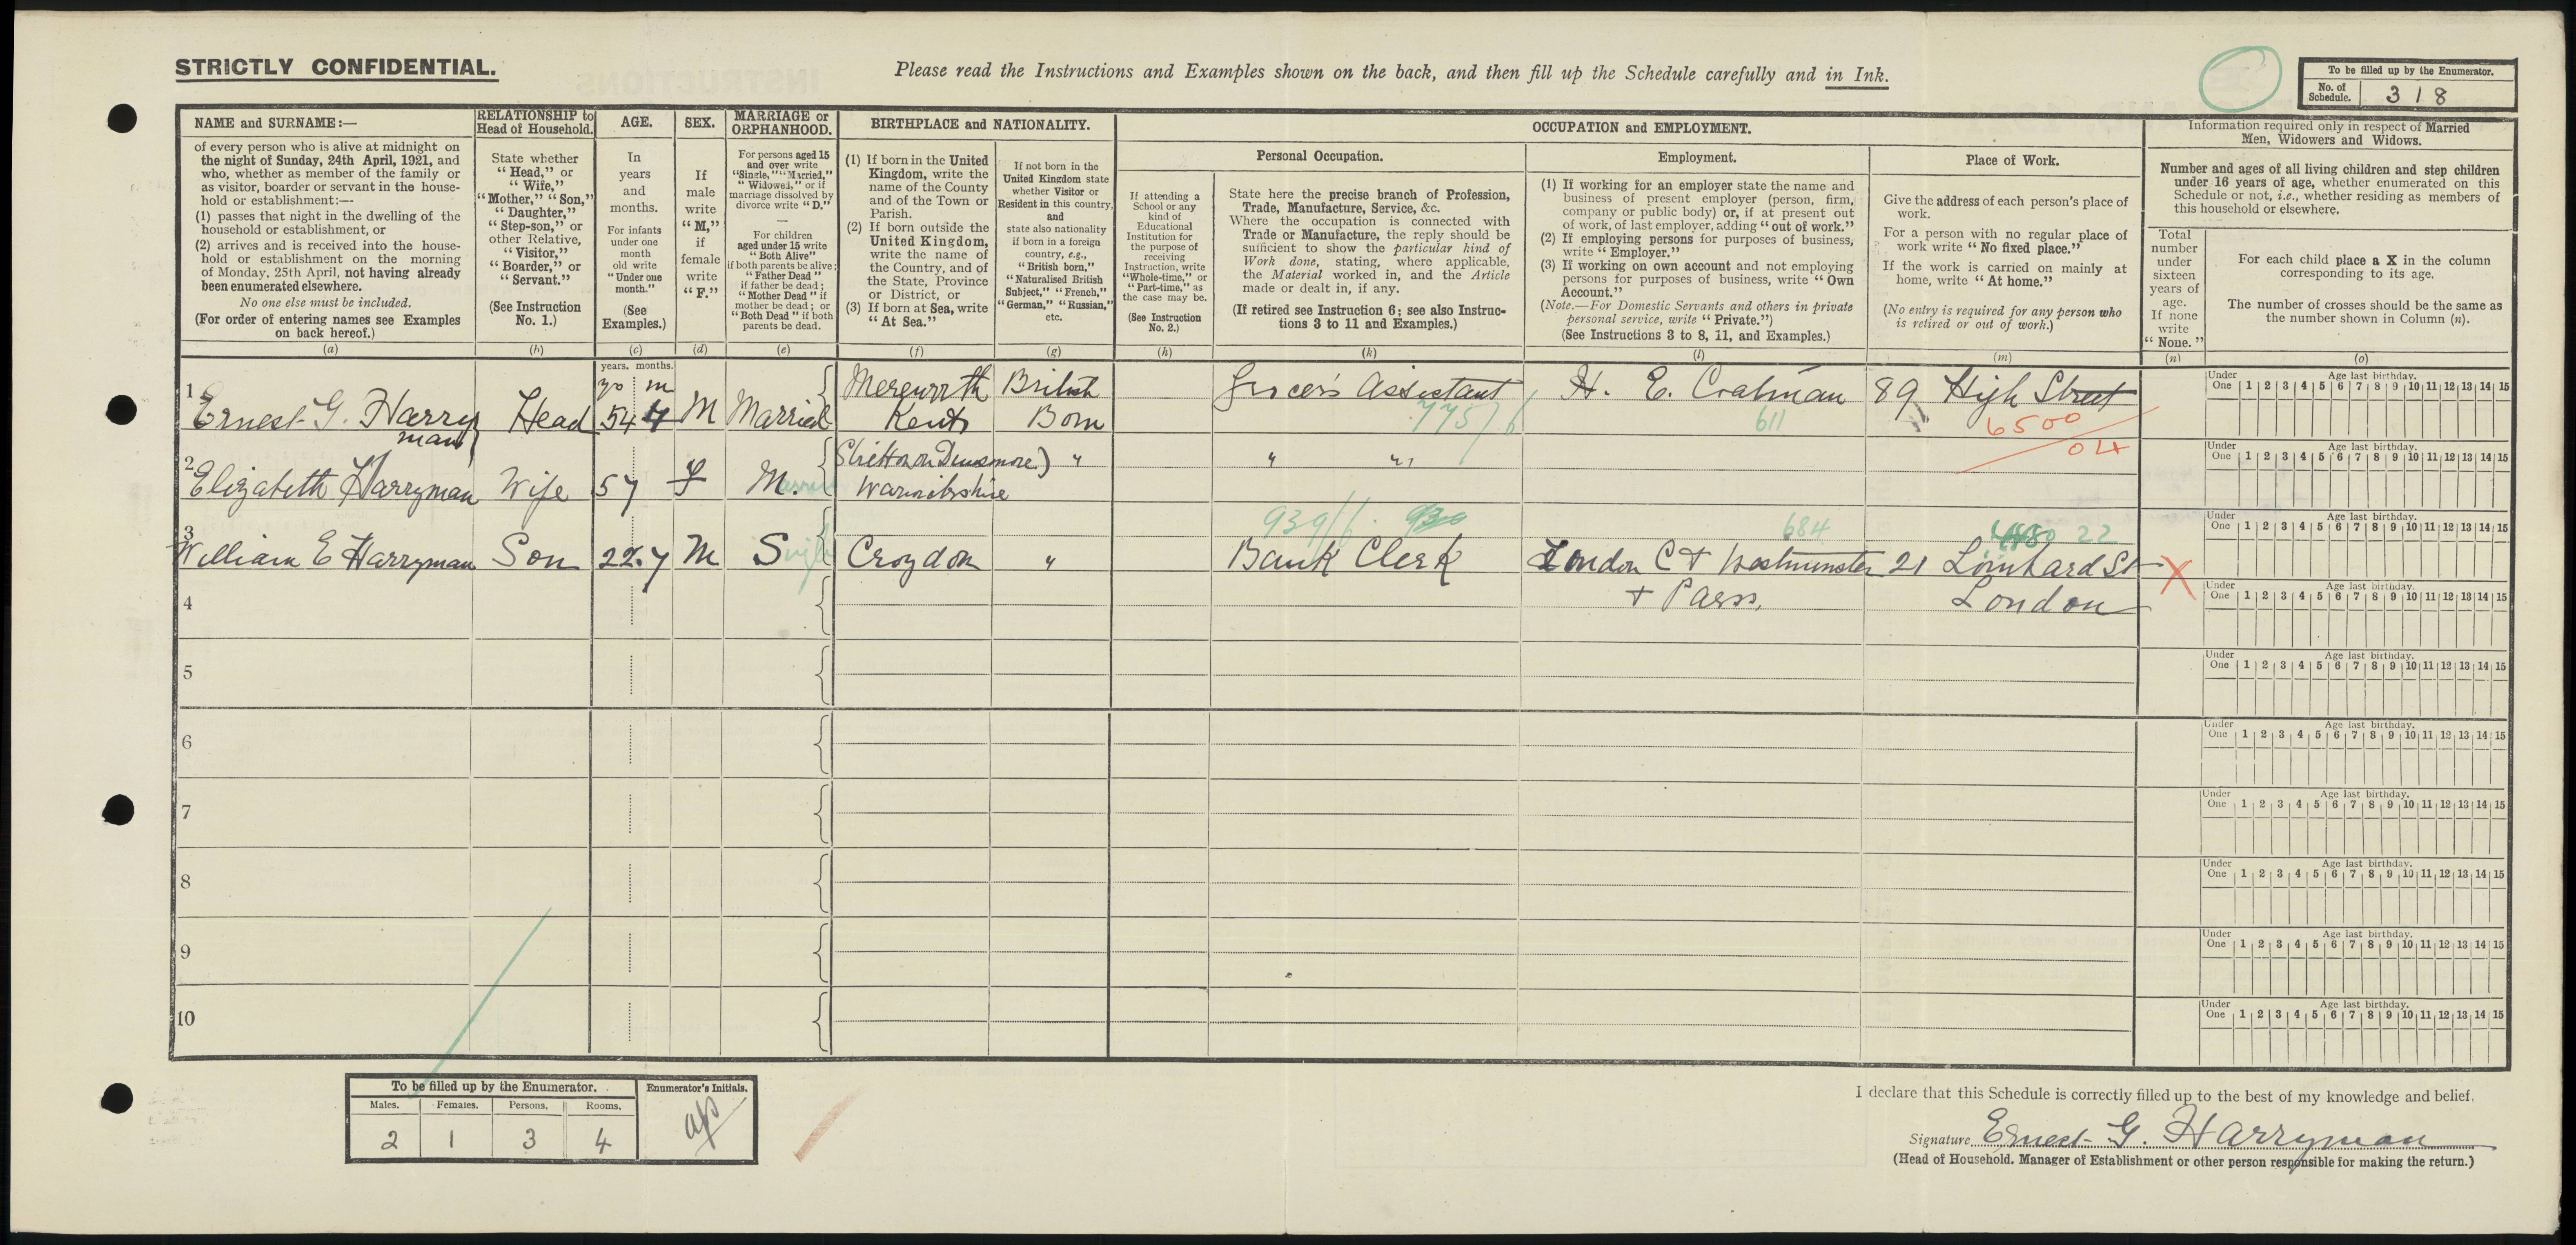 STRICTLY CONFIDENTIAL.
Please read the Instructions and Examples shown on the back, and then fill up the Schedule carefully and in Ink.
To be filled up by the Enumerator.
No. of Schedule. 318
NAME and SURNAME:—
of every person who is alive at midnight on
the night of Sunday, 24th April, 1921, and
who, whether as member of the family or
as visitor, boarder or servant in the house-
hold or establishment:—
(1) passes that night in the dwelling of the
household or establishment, or
(2) arrives and is received into the house-
hold or establishment on the morning
of Monday, 25th April, not having already
been enumerated elsewhere.
No one else must be included.
(For order of entering names see Examples
on back hereof.)
(a)
RELATIONSHIP to
Head of Household.
State whether
"Head," or
"Wife,"
"Mother," "Son,"
"Daughter,"
"Step-son," or
other Relative,
"Visitor,"
"Boarder," or
"Servant."
(See Instruction
No. 1.)
(b)
AGE.
In
years
and
months.
For infants
under one
month
old write
"Under one
month."
(See
Examples.)
(c)
SEX.
If
male
write
"M,"
if
female
write
"F."
(d)
MARRIAGE or
ORPHANHOOD.
For persons aged 15
and over write
"Single," "Married,"
"Widowed," or if
marriage dissolved by
divorce write "D."
—
For children
aged under 15 write
"Both Alive"
if both parents be alive;
"Father Dead"
if father be dead;
"Mother Dead" if
mother be dead; or
"Both Dead" if both
parents be dead.
(e)
BIRTHPLACE and NATIONALITY.
(1) If born in the United
Kingdom, write the
name of the County
and of the Town or
Parish.
(2) If born outside the
United Kingdom,
write the name of
the Country, and of
the State, Province
or District, or
(3) If born at Sea, write
"At Sea."
(f)
If not born in the
United Kingdom state
whether Visitor or
Resident in this country,
and
state also nationality
if born in a foreign
country, e.g.,
"British born,"
"Naturalised British
Subject," "French,"
"German," "Russian,"
etc.
(g)
OCCUPATION and EMPLOYMENT.
Personal Occupation.
If attending a
School or any
kind of
Educational
Institution for
the purpose of
receiving
Instruction, write
"Whole-time," or
"Part-time," as
the case may be.
(See Instruction
No. 2.)
(h)
State here the precise branch of Profession,
Trade, Manufacture, Service, &c.
Where the occupation is connected with
Trade or Manufacture, the reply should be
sufficient to show the particular kind of
Work done, stating, where applicable,
the Material worked in, and the Article
made or dealt in, if any.
(If retired see Instruction 6; see also Instruc-
tions 3 to 11 and Examples.)
(k)
Employment.
(1) If working for an employer state the name and
business of present employer (person, firm,
company or public body) or, if at present out
of work, of last employer, adding "out of work."
(2) If employing persons for purposes of business,
write "Employer."
(3) If working on own account and not employing
persons for purposes of business, write "Own
Account."
(Note.—For Domestic Servants and others in private
personal service, write "Private.")
(See Instructions 3 to 8, 11, and Examples.)
(l)
Place of Work.
Give the address of each person's place of
work.
For a person with no regular place of
work write "No fixed place."
If the work is carried on mainly at
home, write "At home."
(No entry is required for any person who
is retired or out of work.)
(m)
Information required only in respect of Married
Men, Widowers and Widows.
Number and ages of all living children and step children
under 16 years of age, whether enumerated on this
Schedule or not, i.e., whether residing as members of
this household or elsewhere.
Total
number
under
sixteen
years of
age.
If none
write
"None."
(n)
For each child place a X in the column
corresponding to its age.
The number of crosses should be the same as
the number shown in Column (n).
(o)
years. months.
1 Ernest G. Harryman Head 54 M Married Mereworth Kent British Born Grocer's Assistant 775/6 611 89 High Street 6500 04
Under One 1 2 3 4 5 6 7 8 9 10 11 12 13 14 15
Age last birthday.
2 Elizabeth Harryman Wife 57 F M. Warwickshire " " "
Under One 1 2 3 4 5 6 7 8 9 10 11 12 13 14 15
Age last birthday.
939/6 930 684 22
3 William E Harryman Son 22.7 M S Croydon " Bank Clerk London C & Westminster 21 Lombard St X
& Parrs. London
Under One 1 2 3 4 5 6 7 8 9 10 11 12 13 14 15
Age last birthday.
4
Under One 1 2 3 4 5 6 7 8 9 10 11 12 13 14 15
Age last birthday.
5
Under One 1 2 3 4 5 6 7 8 9 10 11 12 13 14 15
Age last birthday.
6
Under One 1 2 3 4 5 6 7 8 9 10 11 12 13 14 15
Age last birthday.
7
Under One 1 2 3 4 5 6 7 8 9 10 11 12 13 14 15
Age last birthday.
8
Under One 1 2 3 4 5 6 7 8 9 10 11 12 13 14 15
Age last birthday.
9
Under One 1 2 3 4 5 6 7 8 9 10 11 12 13 14 15
Age last birthday.
10
Under One 1 2 3 4 5 6 7 8 9 10 11 12 13 14 15
Age last birthday.
To be filled up by the Enumerator.
Enumerator's Initials.
Males. Females. Persons. Rooms.
2 1 3 4
I declare that this Schedule is correctly filled up to the best of my knowledge and belief.
Signature Ernest G. Harryman
(Head of Household, Manager of Establishment or other person responsible for making the return.)